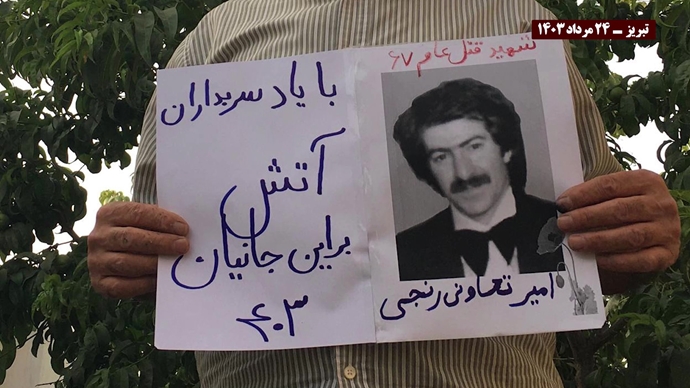 تبریز ــ ۲۴ مرداد ۱۴۰۳
شهید قتل عام ۶۷
امیر تعاونی رنجی
با یاد سربداران
آتش
براین جانیان